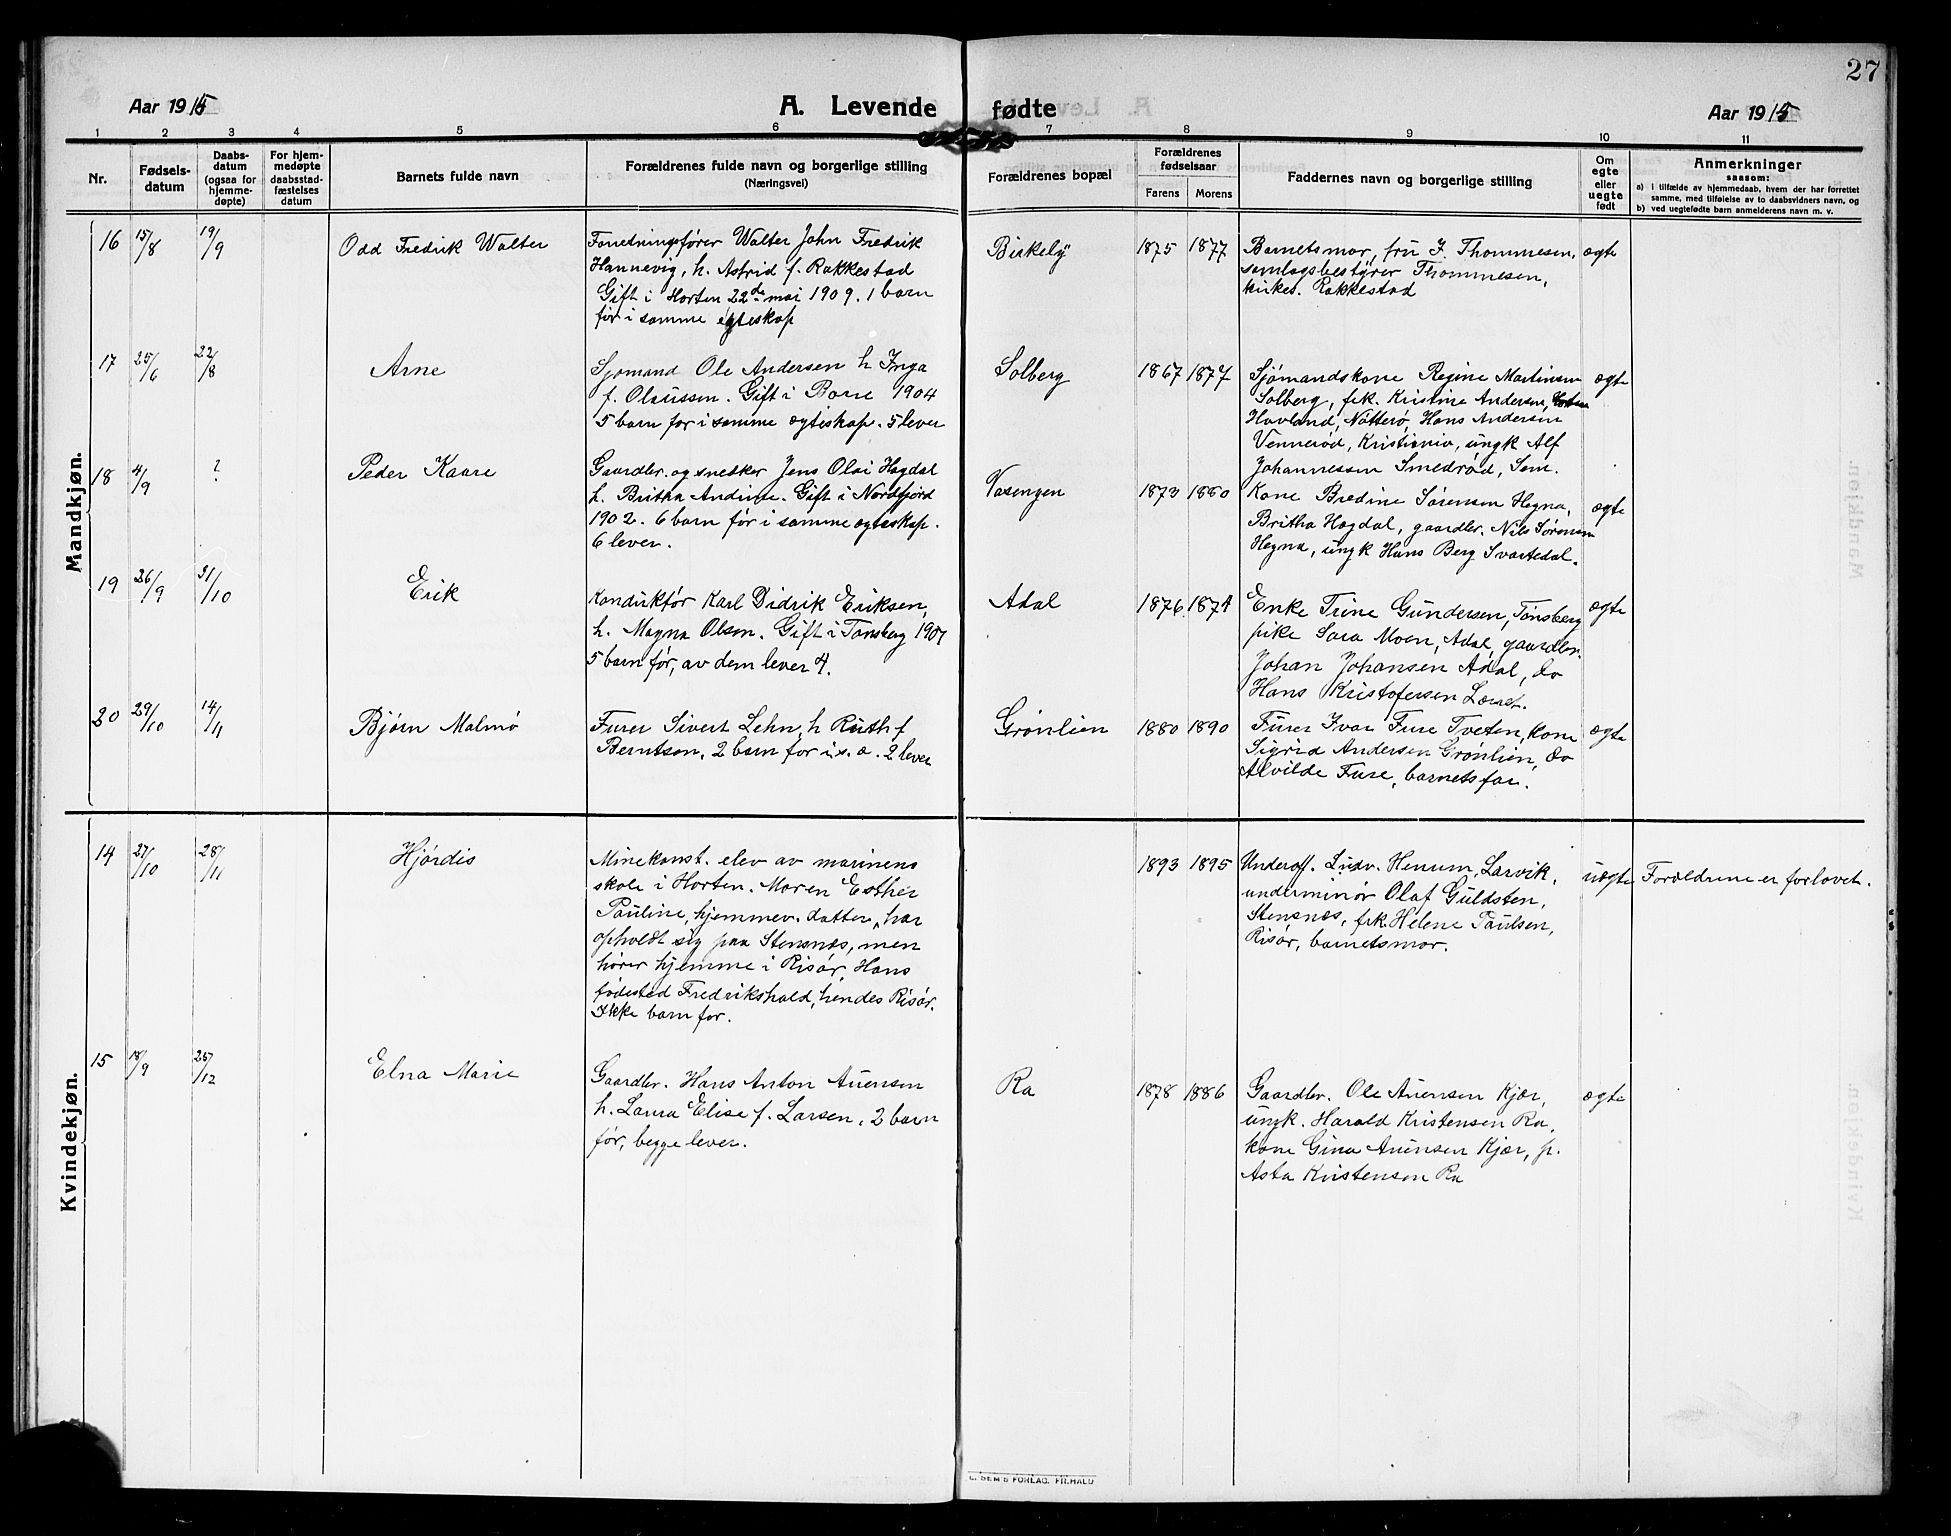 27
Aar 1915
A. Levende fødte
Aar 1915
1 2 3 4 5 6 7 8 9 10 11
Nr.
Fødsels-
datum
Daabs-
datum
(ogsaa for
hjemme-
døpte)
For hjem-
medøpte
daabsstad-
fæstelses
datum
Barnets fulde navn
Forældrenes fulde navn og borgerlige stilling
(Næringsvei)
Forældrenes bopæl
Forældrenes
fødselsaar
Farens Morens
Faddernes navn og borgerlige stilling
Om
egte
eller
uegte
født
Anmerkninger
saasom:
a) i tilfælde av hjemmedaab, hvem der har forrettet
samme, med tilføielse av to daabsvidners navn, og
b) ved uegtefødte barn anmelderens navn m. v.
Mandkjøn.
16 15/8 19/9 Odd Fredrik Walter
Forretningsfører Walter John Fredrik
Hannevig, h. Astrid f. Rakkestad
Gift i Horten 22de mai 1909. 1 barn
før i samme egteskap
Birkely 1875 1877
Barnetsmor, fru J. Thommesen,
samlagsbestyrer Thommesen,
kirkes. Rakkestad
ægte
17 25/6 22/8 Arne
Sjømand Ole Andersen h Inga
f. Olaussen. Gift i Borre 1904
5 barn før i samme ægteskap. 5 lever
Solberg 1867 1877
Sjømandskone Regine Martinsen
Solberg, frk. Kristine Andersen,
Havland, Nøtterø, Hans Andersen
Vennerød, Kristiania, ungk Alf
Johannessen Smedrød, Sem.
ægte
18 4/9 ? Peder Kaare
Gaardbr. og snedker Jens Olai Hagdal
h. Britha Andrine. Gift i Nordfjord
1902. 6 barn før i samme egteskap.
6 lever.
Vasengen 1873 1880
Kone Bredine Sørensen Hegna,
Britha Hagdal, gaardbr. Nils Sørensen
Hegna, ungk Hans Berg Svartedal.
ægte
19 26/9 31/10 Erik
Konduktør Karl Didrik Eriksen,
h. Magna Olsen. Gift i Tønsberg 1907
5 barn før, av dem lever 4.
Adal 1876 1874
Enke Trine Gundersen, Tønsberg
pike Sara Moen, Adal, gaardbr.
Johan Johansen Adal, do
Hans Kristofersen
ægte
20 29/10 14/11 Bjørn Malmø
Furer Sivert Lehn, h Ruth f
Berntsen, 2 barn før i s. æ. 2 lever
Grønlien 1880 1890
Furer Ivar Fure Tveten, kone
Sigrid Andersen Grønlien, do
Alvilde Fure, barnets far.
ægte
Kvindekjøn.
14 27/10 28/11 Hjørdis
Minekonst. elev av marinens
skole i Horten. Moren Esther
Pauline, hjemmev. datter, har
opholdt sig paa Stensnæs, men
hører hjemme i Risør. Hans
fødested Fredrikshald, hendes Risør.
Ikke barn før.
1893 1895
Underof. Ludv. Henum, Larvik,
underminør Olaf Guldsten,
Stensnæs, frk. Helene Paulsen,
Risør, barnetsmor.
uægte
Forældrene er forlovet.
15 18/9 25/12 Elna Marie
Gaardbr. Hans Anton Auensen
h. Laura Elise f. Larsen, 2 barn
før, begge lever.
Ra 1878 1886
Gaardbr. Ole Auensen Kjær,
ungk. Harald Kristensen Ra,
kone Gina Auensen Kjær, p.
Asta Kristensen Ra
ægte
E. SEM'S FORLAG, FR.HALD